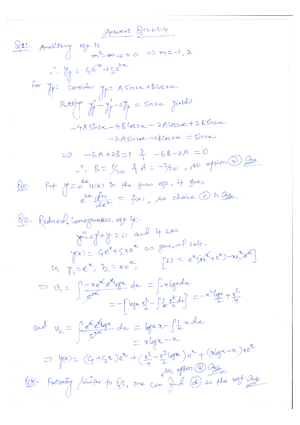 Answers Q1-2-3-4
Q1:- Auxiliary eqn is
m²-m-2=0 ⇒ m=-1, 2
∴ y_c = c₁e^{-x}+c₂e^{2x}
For y_p: consider y_p = A sin2x+B cos2x
Putting y''-y'-2y = sin2x yields
-4A sin2x-4B cos2x-2A cos2x+2B sin2x
-2A sin2x-2B cos2x = sin2x
⇒ -6A+2B=1 & -6B-2A=0
∴ B=1/20 & A=-3/20, so option Ans
Q2:- Put y = u(x) in the given eqn, it gives
= f(x), so choice is Ans
Q3:- Reduced homogeneous eqn is
y''-2y'+y=0 and it has
y(x) = c₁e^x+c₂xe^x as general soln.
y₁=e^x, y₂=xe^x, [W = e^x(xe^x+e^x)-xe^x e^x]
⇒ v₁ = ∫ -xe^x e^x logx / e^{2x} dx = -∫x logx dx
= -[logx x²/2 - ∫ 1/x x²/2 dx] = -x²/2 logx + x²/4
and v₂ = ∫ e^x e^x logx / e^{2x} dx = logx·x - ∫ 1/x x dx
= x logx - x
⇒ y(x) = (c₁+c₂x)e^x + (x²/4 - x²/2 logx)e^x + (x logx-x)xe^x
so, option Ans
Q4:- Following similar to Q3, one can find as the Ans